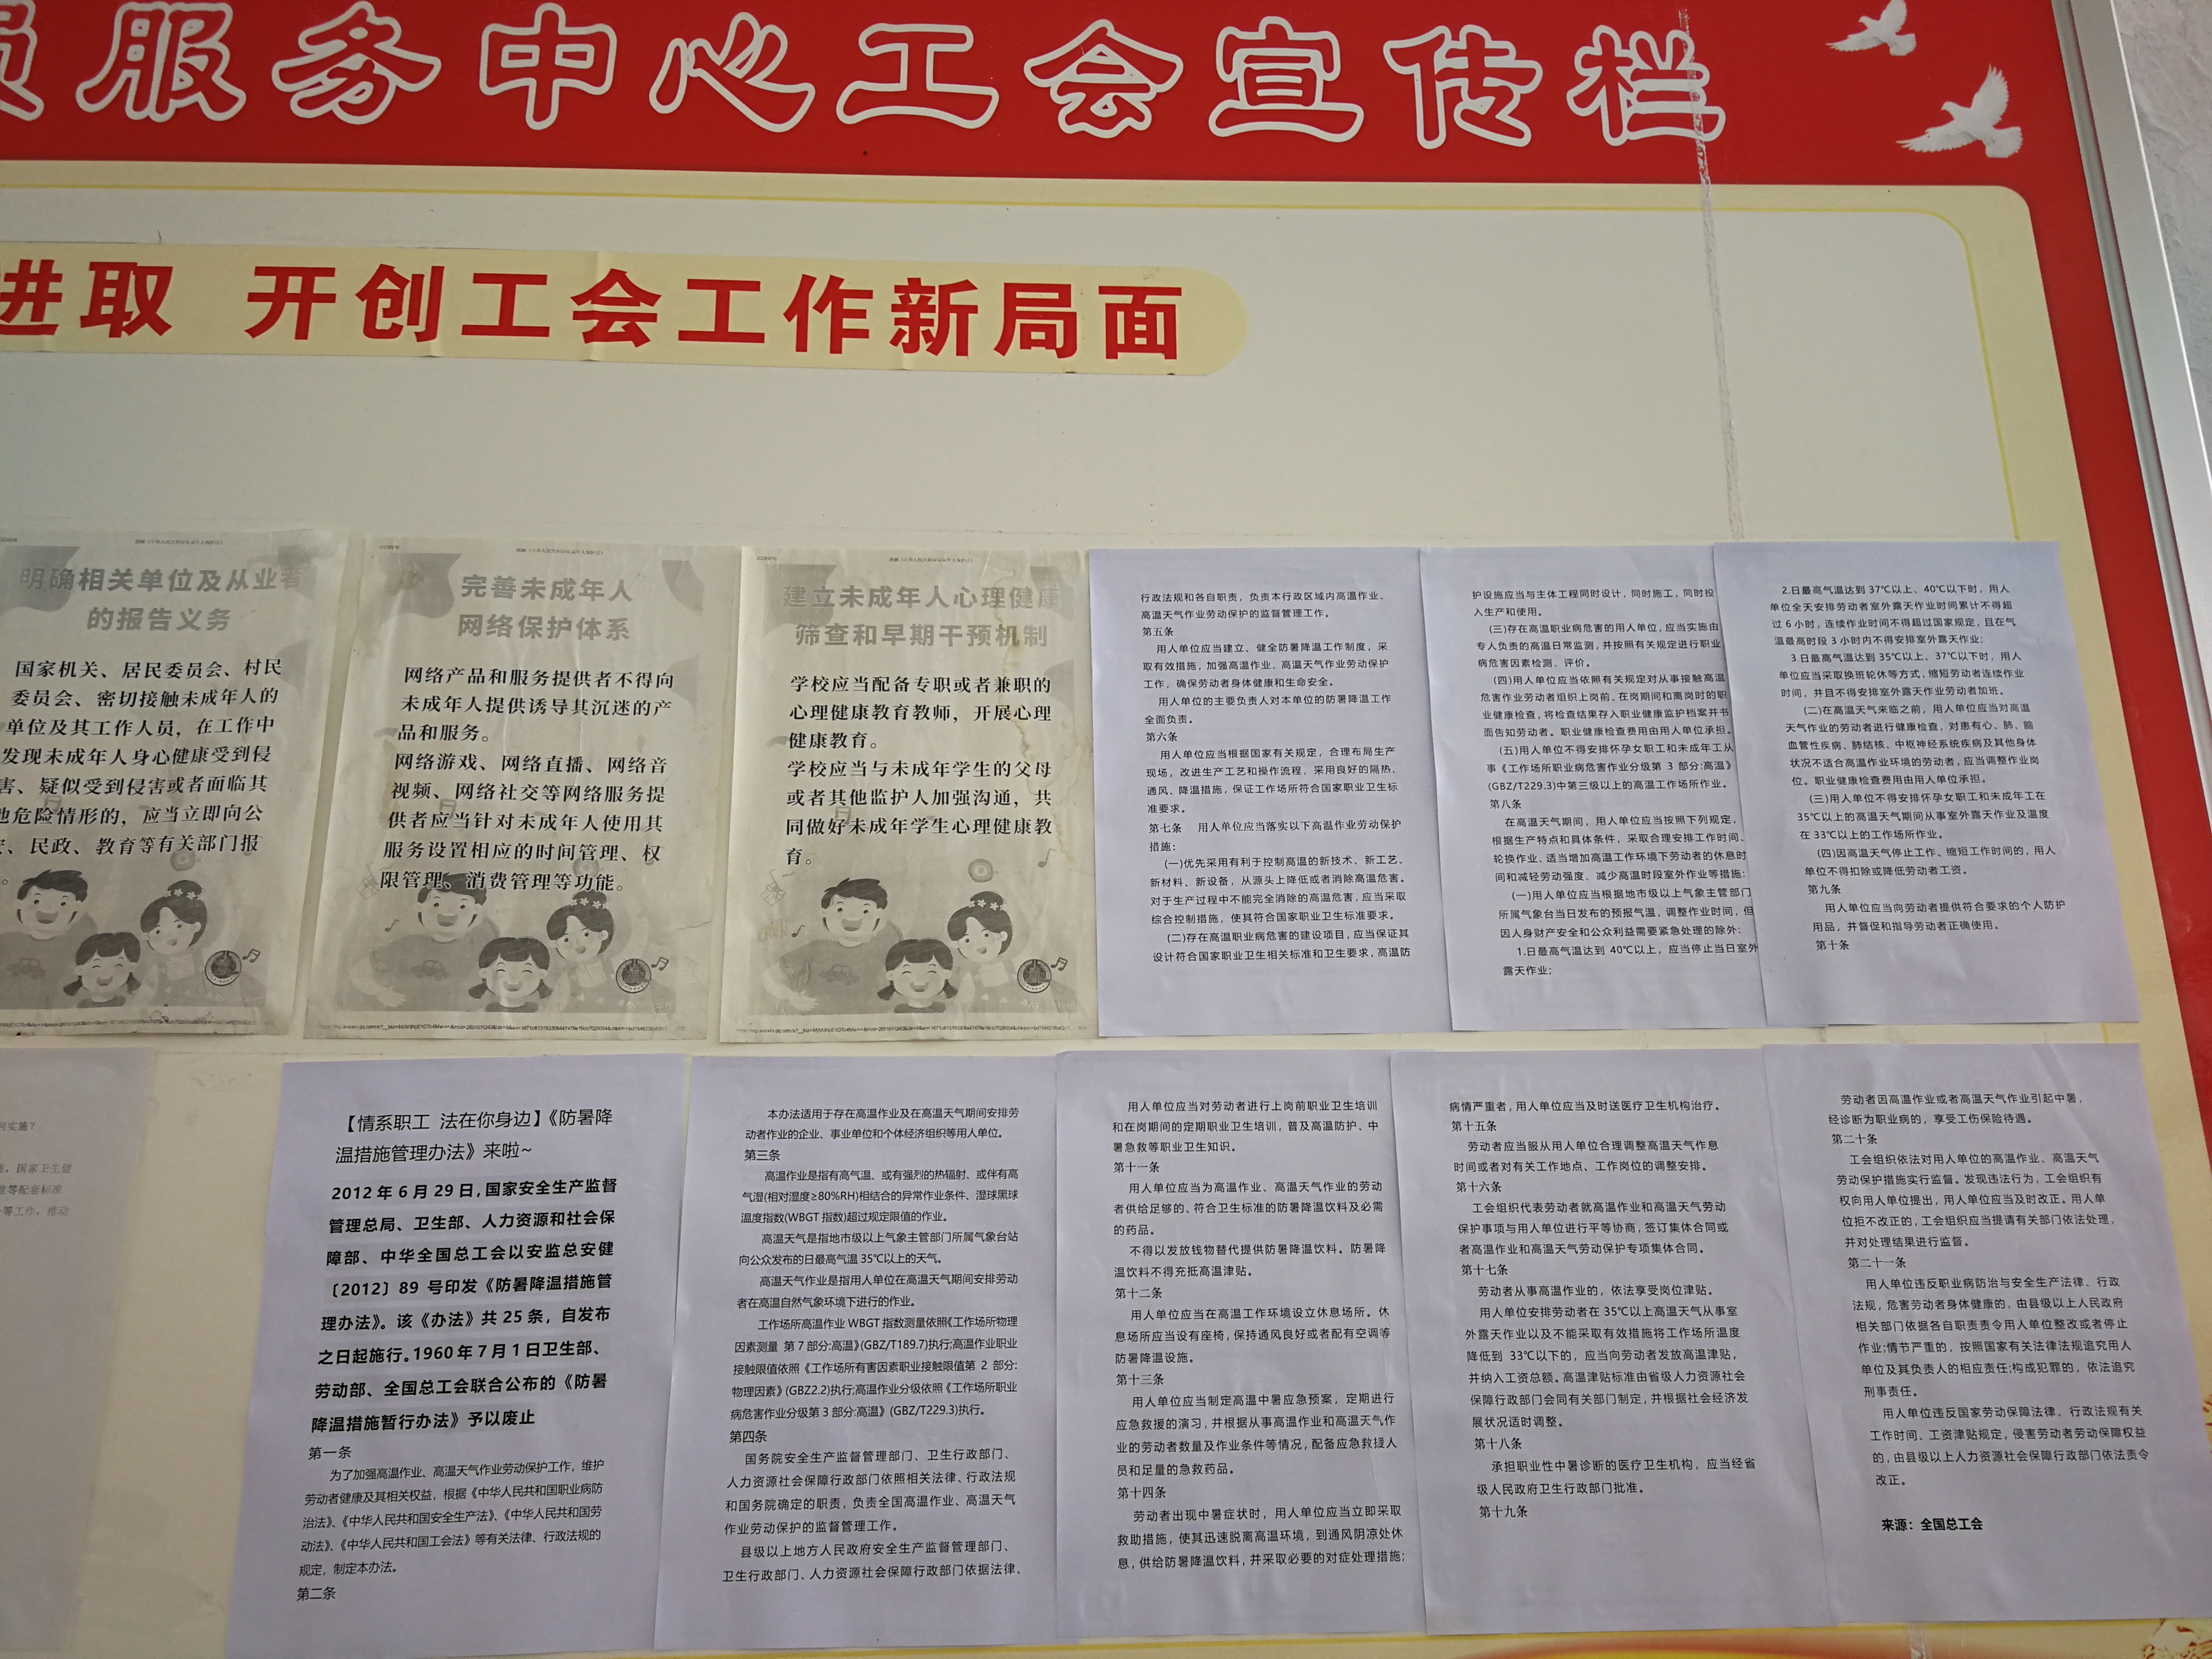 服务中心工会宣传栏
进取 开创工会工作新局面
明确相关单位及从业者
的报告义务
国家机关、居民委员会、村民
委员会、密切接触未成年人的
单位及其工作人员，在工作中
发现未成年人身心健康受到侵
害、疑似受到侵害或者面临其
他危险情形的，应当立即向公
、民政、教育等有关部门报
。
完善未成年人
网络保护体系
网络产品和服务提供者不得向
未成年人提供诱导其沉迷的产
品和服务。
网络游戏、网络直播、网络音
视频、网络社交等网络服务提
供者应当针对未成年人使用其
服务设置相应的时间管理、权
限管理、消费管理等功能。
建立未成年人心理健康
筛查和早期干预机制
学校应当配备专职或者兼职的
心理健康教育教师，开展心理
健康教育。
学校应当与未成年学生的父母
或者其他监护人加强沟通，共
同做好未成年学生心理健康教
育。
行政法规和各自职责，负责本行政区域内高温作业、
高温天气作业劳动保护的监督管理工作。
第五条
用人单位应当建立、健全防暑降温工作制度，采
取有效措施，加强高温作业、高温天气作业劳动保护
工作，确保劳动者身体健康和生命安全。
用人单位的主要负责人对本单位的防暑降温工作
全面负责。
第六条
用人单位应当根据国家有关规定，合理布局生产
现场，改进生产工艺和操作流程，采用良好的隔热、
通风、降温措施，保证工作场所符合国家职业卫生标
准要求。
第七条 用人单位应当落实以下高温作业劳动保护
措施：
(一)优先采用有利于控制高温的新技术、新工艺、
新材料、新设备，从源头上降低或者消除高温危害。
对于生产过程中不能完全消除的高温危害，应当采取
综合控制措施，使其符合国家职业卫生标准要求。
(二)存在高温职业病危害的建设项目，应当保证其
设计符合国家职业卫生相关标准和卫生要求，高温防
护设施应当与主体工程同时设计，同时施工，同时投
入生产和使用。
(三)存在高温职业病危害的用人单位，应当实施由
专人负责的高温日常监测，并按照有关规定进行职业
病危害因素检测、评价。
(四)用人单位应当依照有关规定对从事接触高温
危害作业劳动者组织上岗前、在岗期间和离岗时的职
业健康检查，将检查结果存入职业健康监护档案并书
面告知劳动者。职业健康检查费用由用人单位承担。
(五)用人单位不得安排怀孕女职工和未成年工从
事《工作场所职业病危害作业分级第 3 部分:高温》
(GBZ/T229.3)中第三级以上的高温工作场所作业。
第八条
在高温天气期间，用人单位应当按照下列规定，
根据生产特点和具体条件，采取合理安排工作时间、
轮换作业、适当增加高温工作环境下劳动者的休息时
间和减轻劳动强度、减少高温时段室外作业等措施:
(一)用人单位应当根据地市级以上气象主管部门
所属气象台当日发布的预报气温，调整作业时间，但
因人身财产安全和公众利益需要紧急处理的除外:
1.日最高气温达到 40℃以上，应当停止当日室外
露天作业;
2.日最高气温达到 37℃以上、40℃以下时，用人
单位全天安排劳动者室外露天作业时间累计不得超
过 6 小时，连续作业时间不得超过国家规定，且在气
温最高时段 3 小时内不得安排室外露天作业;
3.日最高气温达到 35℃以上、37℃以下时，用人
单位应当采取换班轮休等方式，缩短劳动者连续作业
时间，并且不得安排室外露天作业劳动者加班。
(二)在高温天气来临之前，用人单位应当对高温
天气作业的劳动者进行健康检查，对患有心、肺、脑
血管性疾病、肺结核、中枢神经系统疾病及其他身体
状况不适合高温作业环境的劳动者，应当调整作业岗
位。职业健康检查费用由用人单位承担。
(三)用人单位不得安排怀孕女职工和未成年工在
35℃以上的高温天气期间从事室外露天作业及温度
在 33℃以上的工作场所作业。
(四)因高温天气停止工作、缩短工作时间的，用人
单位不得扣除或降低劳动者工资。
第九条
用人单位应当向劳动者提供符合要求的个人防护
用品，并督促和指导劳动者正确使用。
第十条
【情系职工 法在你身边】《防暑降
温措施管理办法》来啦~
2012 年 6 月 29 日，国家安全生产监督
管理总局、卫生部、人力资源和社会保
障部、中华全国总工会以安监总安健
〔2012〕89 号印发《防暑降温措施管
理办法》。该《办法》共 25 条，自发布
之日起施行。1960 年 7 月 1 日卫生部、
劳动部、全国总工会联合公布的《防暑
降温措施暂行办法》予以废止
第一条
为了加强高温作业、高温天气作业劳动保护工作，维护
劳动者健康及其相关权益，根据《中华人民共和国职业病防
治法》、《中华人民共和国安全生产法》、《中华人民共和国劳
动法》、《中华人民共和国工会法》等有关法律、行政法规的
规定，制定本办法。
第二条
本办法适用于存在高温作业及在高温天气期间安排劳
动者作业的企业、事业单位和个体经济组织等用人单位。
第三条
高温作业是指有高气温、或有强烈的热辐射、或伴有高
气湿(相对湿度≥80%RH)相结合的异常作业条件、湿球黑球
温度指数(WBGT 指数)超过规定限值的作业。
高温天气是指地市级以上气象主管部门所属气象台站
向公众发布的日最高气温 35℃以上的天气。
高温天气作业是指用人单位在高温天气期间安排劳动
者在高温自然气象环境下进行的作业。
工作场所高温作业 WBGT 指数测量依照《工作场所物理
因素测量 第 7 部分:高温》(GBZ/T189.7)执行;高温作业职业
接触限值依照《工作场所有害因素职业接触限值第 2 部分:
物理因素》(GBZ2.2)执行;高温作业分级依照《工作场所职业
病危害作业分级第 3 部分:高温》(GBZ/T229.3)执行。
第四条
国务院安全生产监督管理部门、卫生行政部门、
人力资源社会保障行政部门依照相关法律、行政法规
和国务院确定的职责，负责全国高温作业、高温天气
作业劳动保护的监督管理工作。
县级以上地方人民政府安全生产监督管理部门、
卫生行政部门、人力资源社会保障行政部门依据法律、
用人单位应当对劳动者进行上岗前职业卫生培训
和在岗期间的定期职业卫生培训，普及高温防护、中
暑急救等职业卫生知识。
第十一条
用人单位应当为高温作业、高温天气作业的劳动
者供给足够的、符合卫生标准的防暑降温饮料及必需
的药品。
不得以发放钱物替代提供防暑降温饮料。防暑降
温饮料不得充抵高温津贴。
第十二条
用人单位应当在高温工作环境设立休息场所。休
息场所应当设有座椅，保持通风良好或者配有空调等
防暑降温设施。
第十三条
用人单位应当制定高温中暑应急预案，定期进行
应急救援的演习，并根据从事高温作业和高温天气作
业的劳动者数量及作业条件等情况，配备应急救援人
员和足量的急救药品。
第十四条
劳动者出现中暑症状时，用人单位应当立即采取
救助措施，使其迅速脱离高温环境，到通风阴凉处休
息，供给防暑降温饮料，并采取必要的对症处理措施;
病情严重者，用人单位应当及时送医疗卫生机构治疗。
第十五条
劳动者应当服从用人单位合理调整高温天气作息
时间或者对有关工作地点、工作岗位的调整安排。
第十六条
工会组织代表劳动者就高温作业和高温天气劳动
保护事项与用人单位进行平等协商，签订集体合同或
者高温作业和高温天气劳动保护专项集体合同。
第十七条
劳动者从事高温作业的，依法享受岗位津贴。
用人单位安排劳动者在 35℃以上高温天气从事室
外露天作业以及不能采取有效措施将工作场所温度
降低到 33℃以下的，应当向劳动者发放高温津贴，
并纳入工资总额。高温津贴标准由省级人力资源社会
保障行政部门会同有关部门制定，并根据社会经济发
展状况适时调整。
第十八条
承担职业性中暑诊断的医疗卫生机构，应当经省
级人民政府卫生行政部门批准。
第十九条
劳动者因高温作业或者高温天气作业引起中暑，
经诊断为职业病的，享受工伤保险待遇。
第二十条
工会组织依法对用人单位的高温作业、高温天气
劳动保护措施实行监督。发现违法行为，工会组织有
权向用人单位提出，用人单位应当及时改正。用人单
位拒不改正的，工会组织应当提请有关部门依法处理，
并对处理结果进行监督。
第二十一条
用人单位违反职业病防治与安全生产法律、行政
法规，危害劳动者身体健康的，由县级以上人民政府
相关部门依据各自职责责令用人单位整改或者停止
作业;情节严重的，按照国家有关法律法规追究用人
单位及其负责人的相应责任;构成犯罪的，依法追究
刑事责任。
用人单位违反国家劳动保障法律、行政法规有关
工作时间、工资津贴规定，侵害劳动者劳动保障权益
的，由县级以上人力资源社会保障行政部门依法责令
改正。
来源：全国总工会